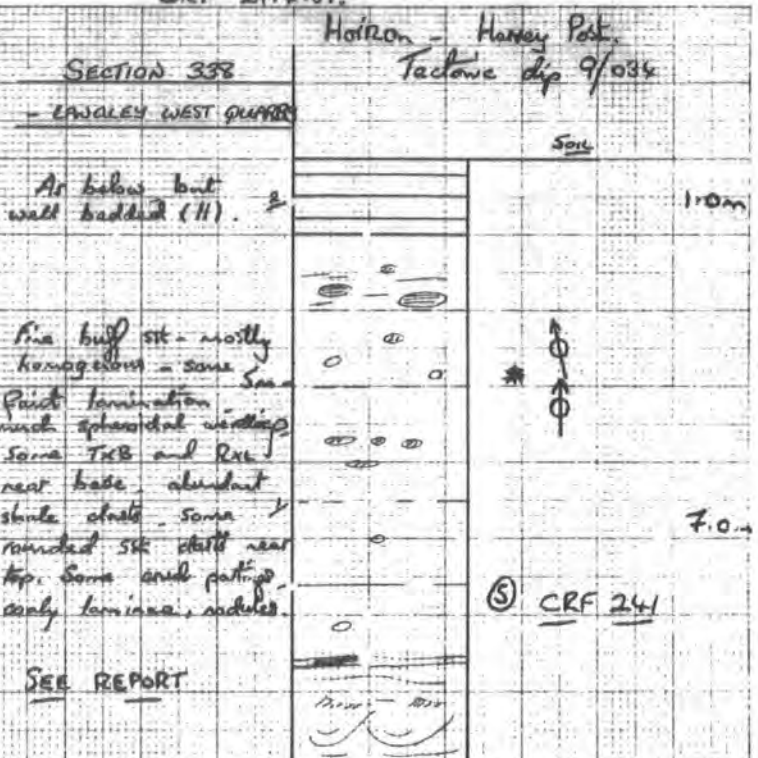 Hoizon - Harvey Post.
Tectonic dip 9/034
SECTION 338
- LANGLEY WEST QUARRY
SOIL
As below but
well bedded (11).
1.0m
Fine buff sst - mostly
homogenous - some
faint lamination
much spheroidal
Some TXB and RXL
near base. abundant
shale clasts. some
rounded sst clasts near
top. Some
coaly laminae, nodules.
7.0m
Ⓢ CRF 241
SEE REPORT